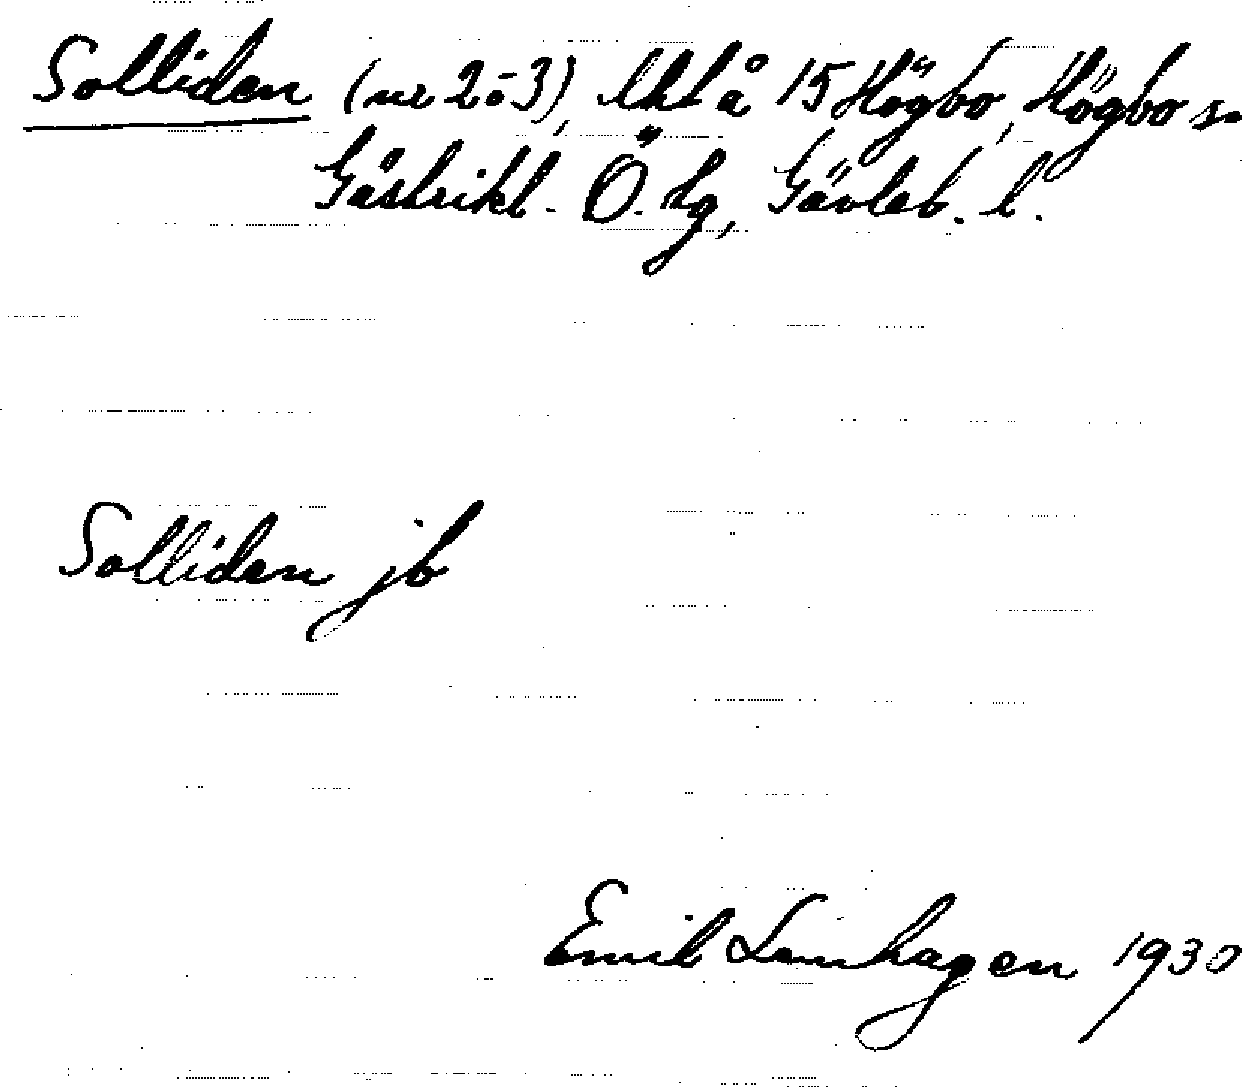 Solliden (nr 2 o 3), lht å 15 Högbo, Högbo s.
Gästrikl. Ö. tg, Gävleb. l.
Solliden jb
Emil Lennhagen 1930